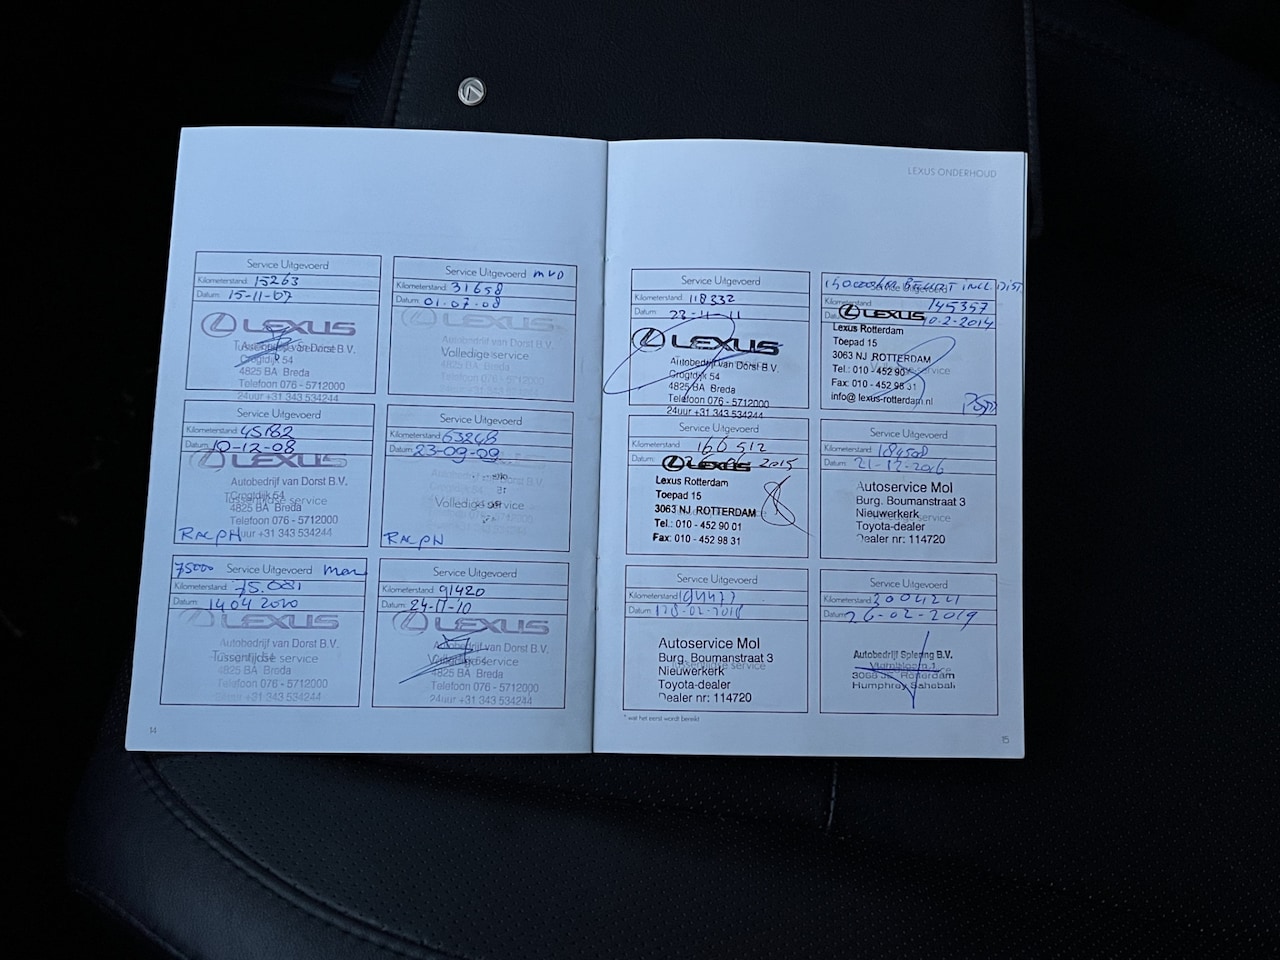 Service Uitgevoerd
Kilometerstand: 15263
Datum: 15-11-07
LEXUS
Autobedrijf van Dorst B.V.
Crogtdijk 54
4825 BA Breda
Telefoon 076 - 5712000
24uur +31 343 534244
Service Uitgevoerd MVD
Kilometerstand: 31658
Datum: 01-07-08
LEXUS
Autobedrijf van Dorst B.V.
Volledige service
4825 BA Breda
Telefoon 076 - 5712000
24uur +31 343 534244
Service Uitgevoerd
Kilometerstand: 45182
Datum: 10-12-08
LEXUS
Autobedrijf van Dorst B.V.
Crogtdijk 54
Tussentijdse service
4825 BA Breda
Telefoon 076 - 5712000
24uur +31 343 534244
RALPH
Service Uitgevoerd
Kilometerstand: 63248
Datum: 23-09-09
Volledige service
RALPH
75000 Service Uitgevoerd
Kilometerstand: 75.081
Datum: 14 04 2010
LEXUS
Autobedrijf van Dorst B.V.
Tussentijdse service
4825 BA Breda
Telefoon 076 - 5712000
24uur +31 343 534244
Service Uitgevoerd
Kilometerstand: 91420
Datum: 24-11-'10
LEXUS
Autobedrijf van Dorst B.V.
4825 BA Breda
Telefoon 076 - 5712000
24uur +31 343 534244
14
LEXUS ONDERHOUD
Service Uitgevoerd
Kilometerstand: 118332
Datum: 23-11-11
LEXUS
Autobedrijf van Dorst B.V.
Crogtdijk 54
4825 BA Breda
Telefoon 076 - 5712000
24uur +31 343 534244
Service Uitgevoerd
Kilometerstand: 145357
Datum: 10-2-2014
LEXUS
Lexus Rotterdam
Toepad 15
3063 NJ ROTTERDAM
Tel.: 010 - 452 90
Fax: 010 - 452 98 31
info@lexus-rotterdam.nl
Service Uitgevoerd
Kilometerstand: 166512
Datum: 2015
LEXUS
Lexus Rotterdam
Toepad 15
3063 NJ ROTTERDAM
Tel.: 010 - 452 90 01
Fax: 010 - 452 98 31
Service Uitgevoerd
Kilometerstand: 184508
Datum: 21-12-2016
Autoservice Mol
Burg. Boumanstraat 3
Nieuwerkerk
Toyota-dealer
Dealer nr: 114720
Service Uitgevoerd
Kilometerstand:
Datum: 128-02-2018
Autoservice Mol
Burg. Boumanstraat 3
Nieuwerkerk
Toyota-dealer
Dealer nr: 114720
Service Uitgevoerd
Kilometerstand:
Datum: 26-02-2019
Autobedrijf Spiering B.V.
3068 Rotterdam
Humphrey Sahebali
* wat het eerst wordt bereikt
15